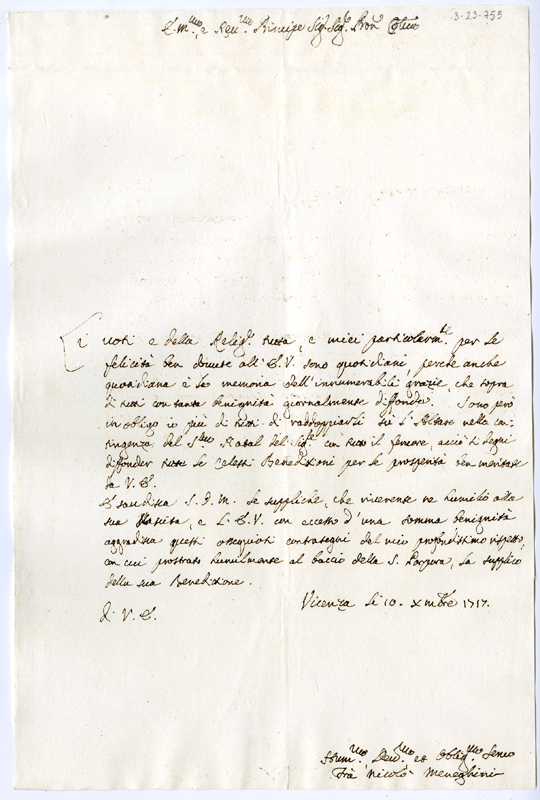 3-23-755
E.mmo, e Reu.mo Principe Sig.r Sig.r Pron Col.mo
I uoti e della Relig.e tutta, e miei particolarm.te per le
felicità ben douute all' E.V. sono quotidiani, perche anche
quotidiana è la memoria dell' innumerabili grazie, che sopra
di tutti con tanta benignità giornalmente diffonde. Sono però
in obligo io più di tutti di raddoppiarli sù l'Altare nella con-
tingenza del S.mo Natal del Sig.re con tutto il feruore, acciò si degni
diffonder tutte le Celesti Benedizioni per le prosperità ben meritate
da V.E.
Esaudisca S.D.M. le suppliche, che riuerente ne humilio alla
sua Nascita, e L'E.V. con eccesso d'una somma benignità
aggradisca questi ossequiosi contrasegni del mio profondissimo rispetto,
con cui prostrato humilmente al baccio della S. Porpora, la supplico
della sua Benedizione.
di V.E. Vicenza li 10. Xmbre 1717.
Hum.mo, Deu.mo et Oblig.mo Seruo
Frà Nicolò Meneghini